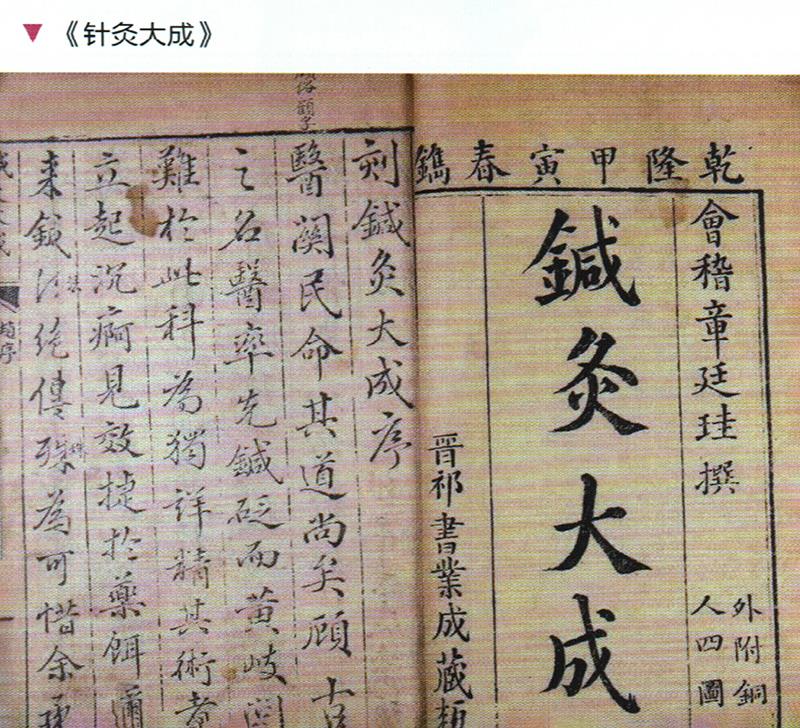 ▼《针灸大成》
乾隆甲寅春鐫
會稽章廷珪撰
外附銅
人四圖
鍼灸大成
晋祁書業成藏
刻鍼灸大成序
醫関民命其道尚矣顧
之名醫率先鍼砭而黄岐
難於此科為獨詳精其術
立起沉痾見效捷於藥餌
来鍼法絶傳殊為可惜余